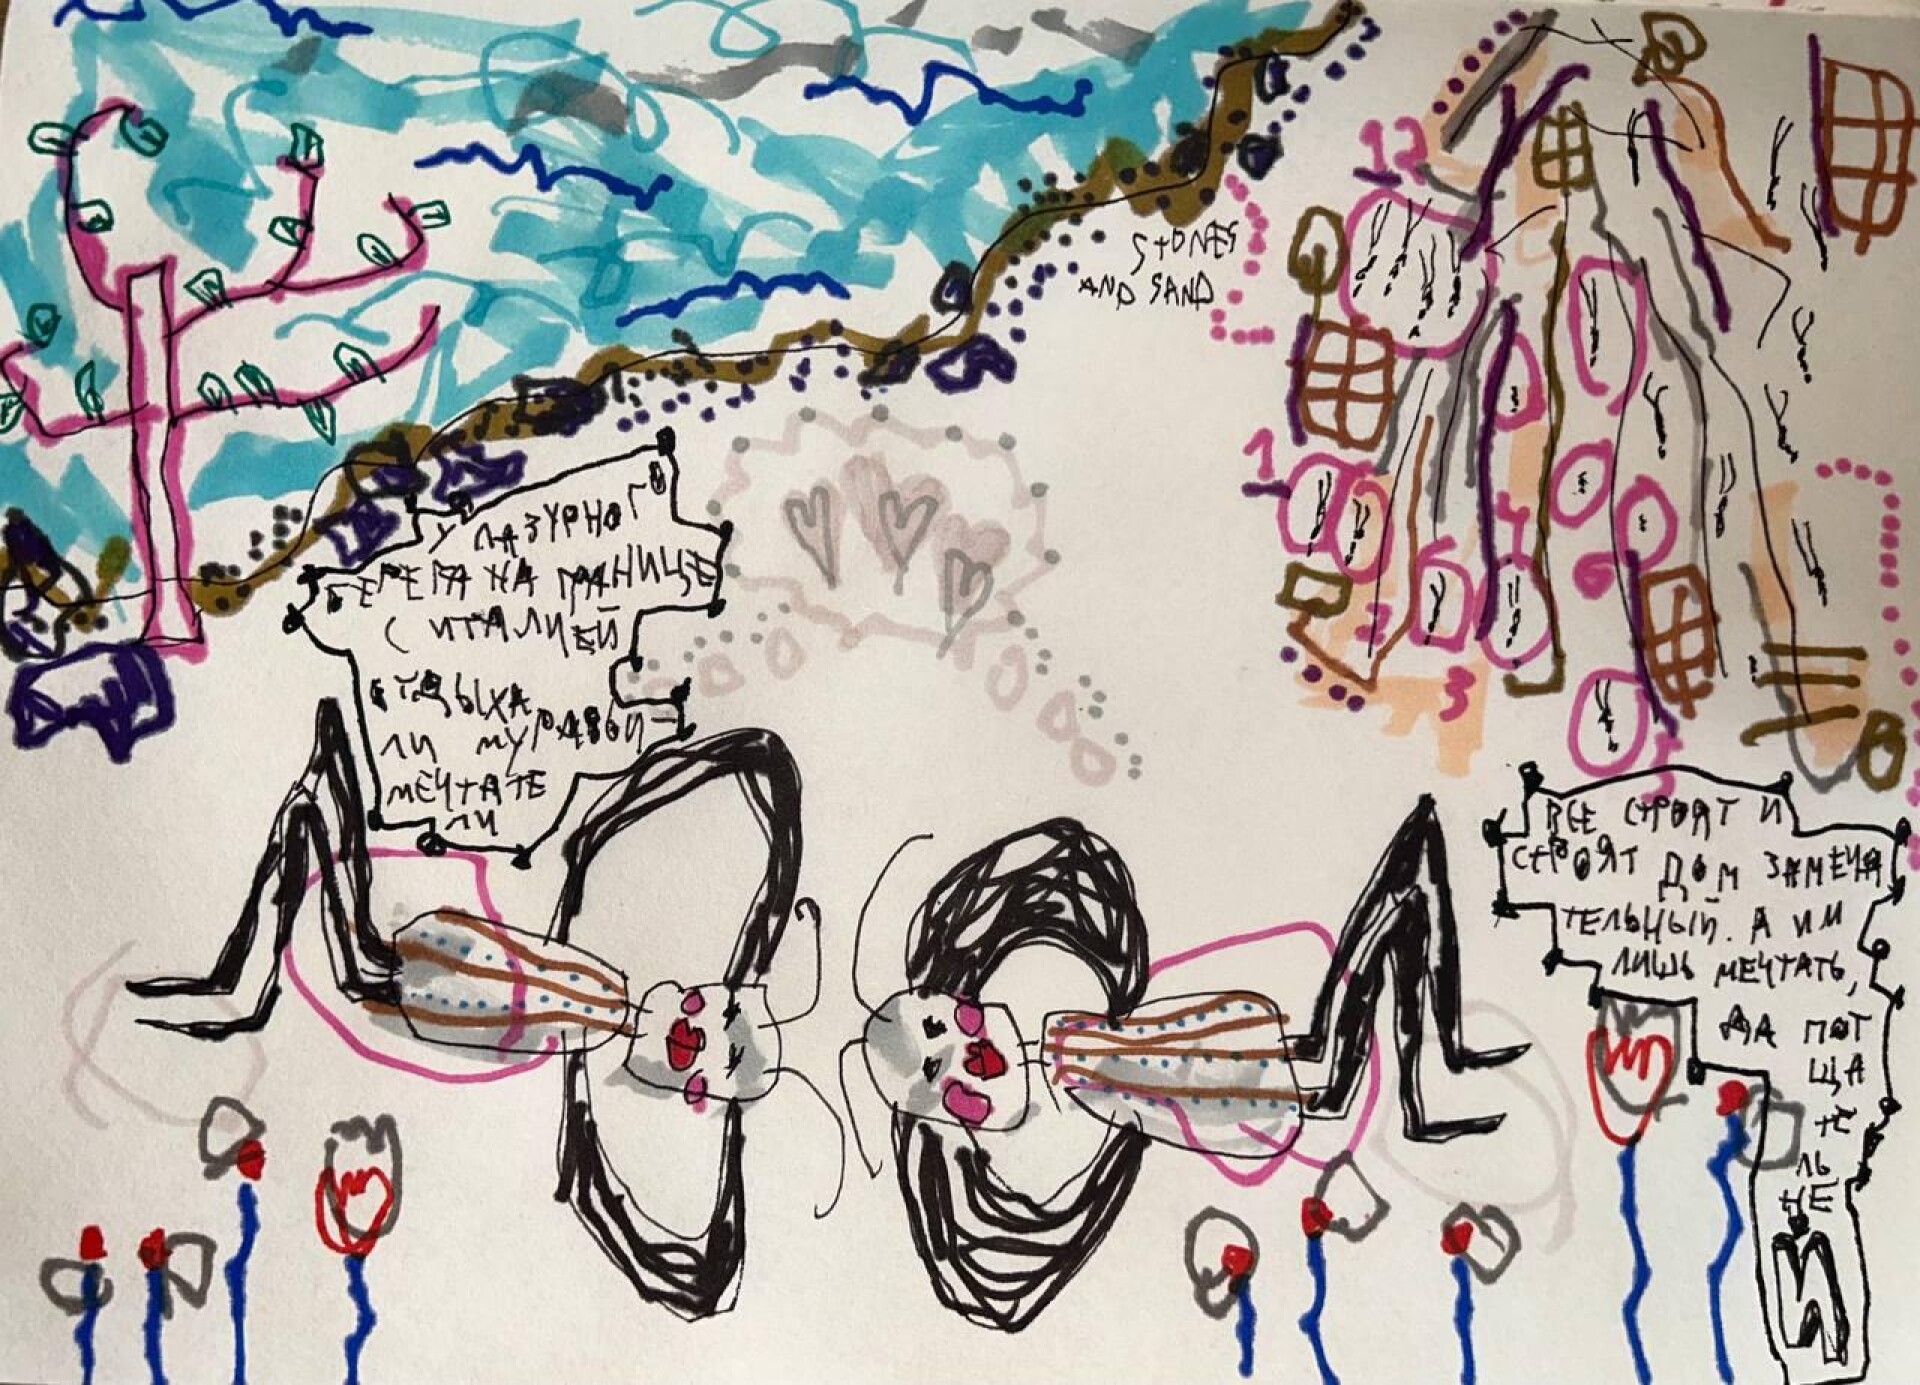 STONES
AND SAND
У ЛАЗУРНОГО
БЕРЕГА НА ГРАНИЦЕ
С ИТАЛИЕЙ
ОТДЫХА
ЛИ МУРАВЬИ
МЕЧТАТЕ
ЛИ
ВСЕ СТРОЯТ И
СТРОЯТ ДОМ ЗАМЕЧА
ТЕЛЬНЫЙ. А ИМ
ЛИШЬ МЕЧТАТЬ,
ДА ПОТ
ЩА
ТЕ
ЛЬ
НЕ
Й
12
1
2
3
4
5
6